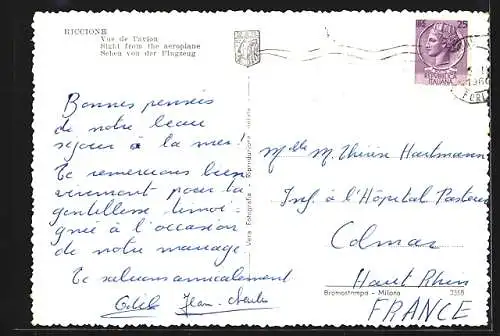 RICCIONE
Vue de l'avion
Sight from the aeroplane
Sehen von der Flugzeug
Bonnes pensées
de notre beau
séjour à la mer.
Te remercions bien
vivement pour ta
gentillesse témoi-
gnée à l'occasion
de notre mariage.
Te saluons amicalement
Jean-
Vera Fotografia - Riproduzione vietata
25
REPVBBLICA
ITALIANA
196
FORLI
Melle M. Thérèse Hartmann
Inf. à l'Hôpital Pasteur
Colmar
Haut Rhin
Bromostampa - Milano
FRANCE